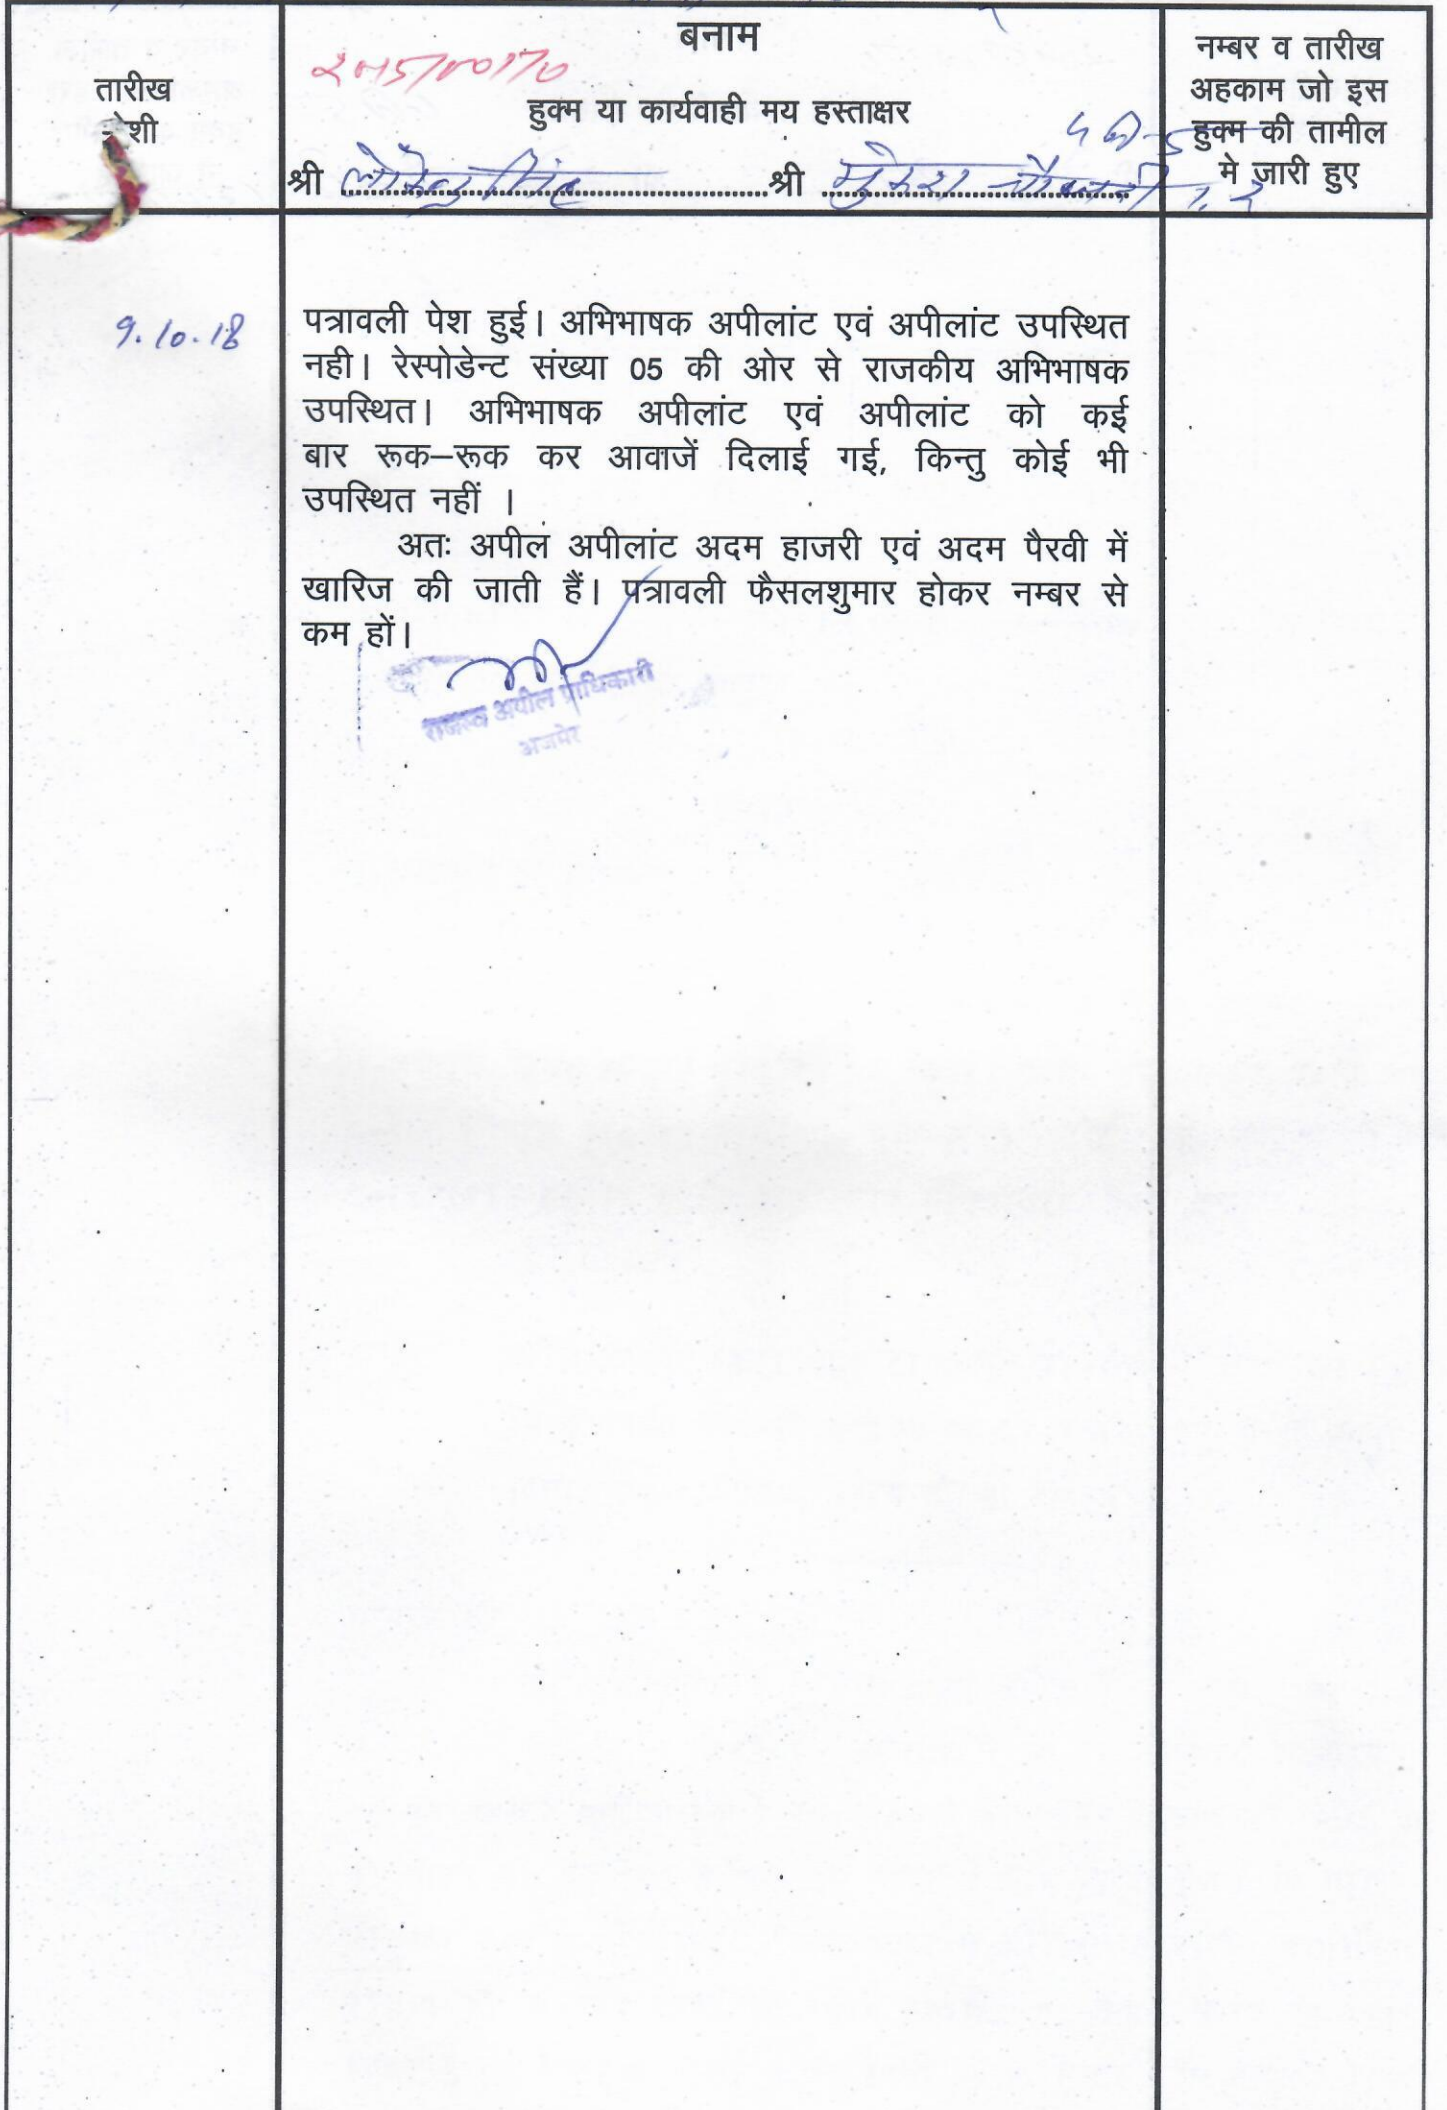 बनाम
तारीख
पेशी
हुक्म या कार्यवाही मय हस्ताक्षर
नम्बर व तारीख
अहकाम जो इस
हुक्म की तामील
मे जारी हुए
श्री श्री मुकेश
9.10.18
पत्रावली पेश हुई। अभिभाषक अपीलांट एवं अपीलांट उपस्थित
नही। रेस्पोडेन्ट संख्या 05 की ओर से राजकीय अभिभाषक
उपस्थित। अभिभाषक अपीलांट एवं अपीलांट को कई
बार रूक–रूक कर आवाजें दिलाई गई, किन्तु कोई भी
उपस्थित नहीं ।
अतः अपील अपीलांट अदम हाजरी एवं अदम पैरवी में
खारिज की जाती हैं। पत्रावली फैसलशुमार होकर नम्बर से
कम हों।
राजस्व अपील प्राधिकारी
अजमेर